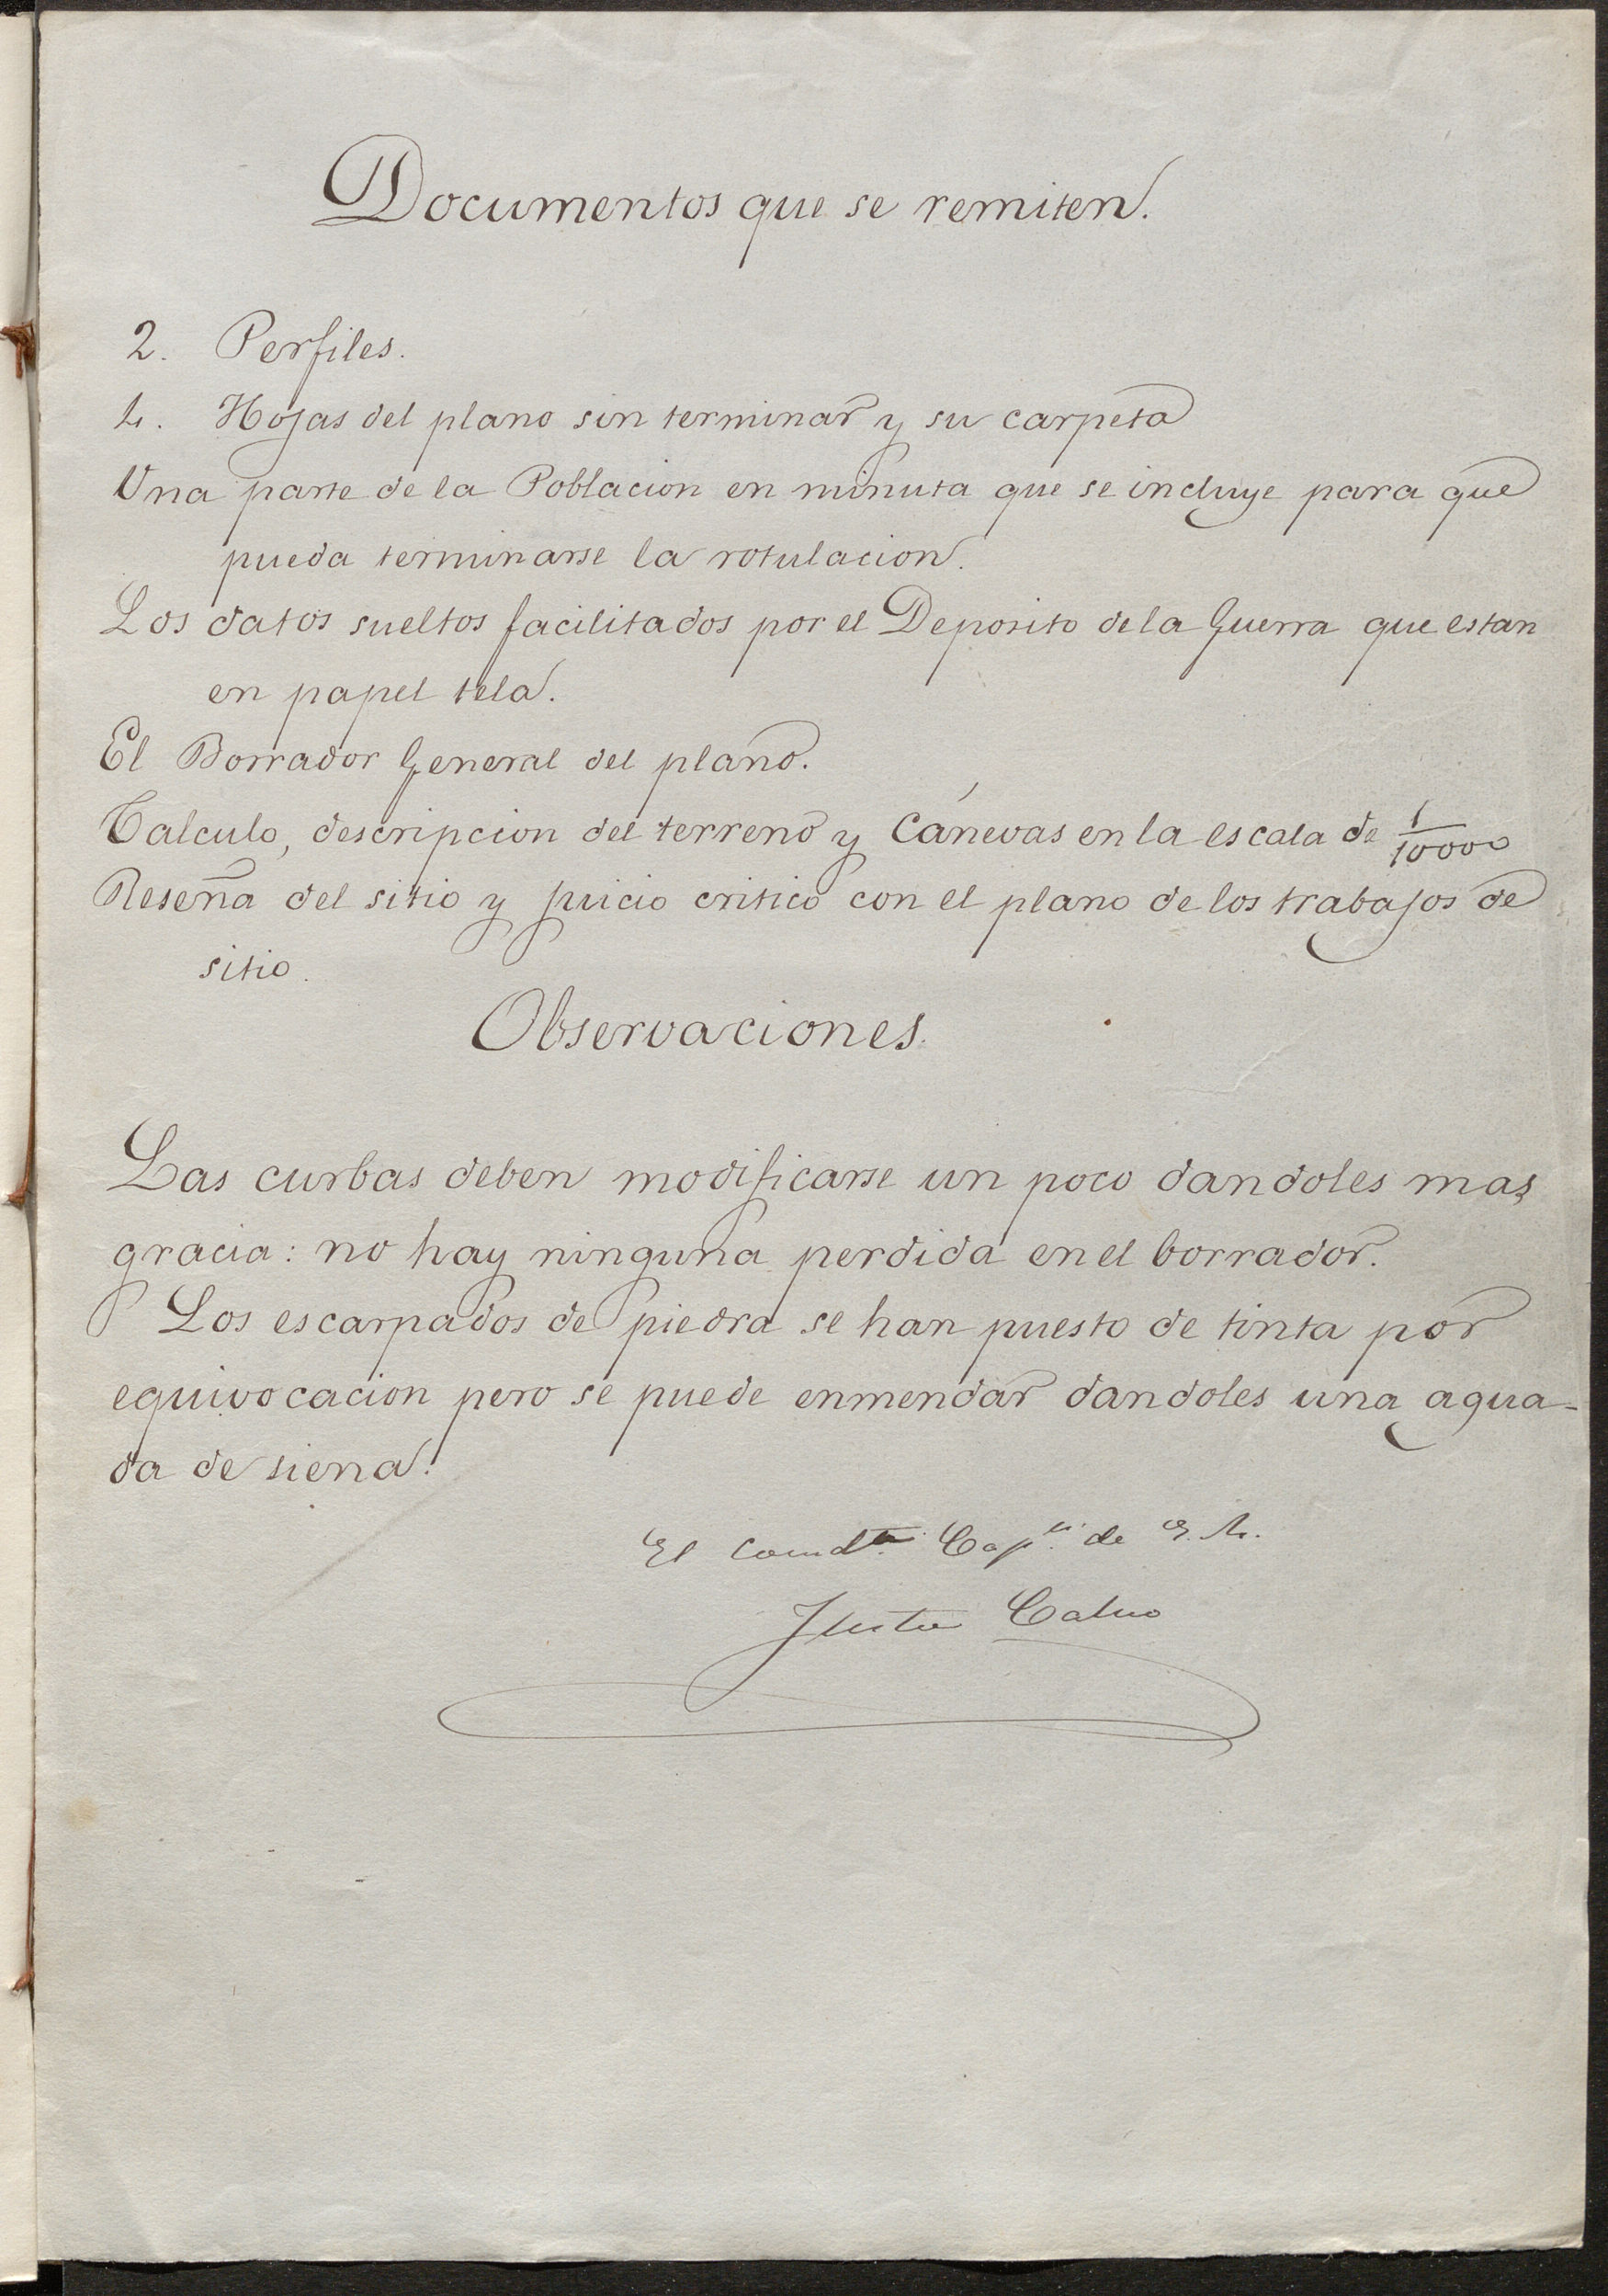 Documentos que se remiten.
2. Perfiles.
4. Hojas del plano sin terminar y su carpeta
Una parte de la Poblacion en minuta que se incluye para que
pueda terminarse la rotulacion.
Los datos sueltos facilitados por el Deposito de la Guerra que estan
en papel tela.
El Borrador General del plano.
Calculo, descripcion del terreno y Cánevas en la escala de 1/10000
Reseña del sitio y juicio critico con el plano de los trabajos de
sitio.
Observaciones.
Las curbas deben modificarse un poco dandoles mas
gracia: no hay ninguna perdida en el borrador.
Los escarpados de piedra se han puesto de tinta por
equivocacion pero se puede enmendar dandoles una agua-
da de siena.
El Comdte. Capn. de E. M.
Justo Calvo